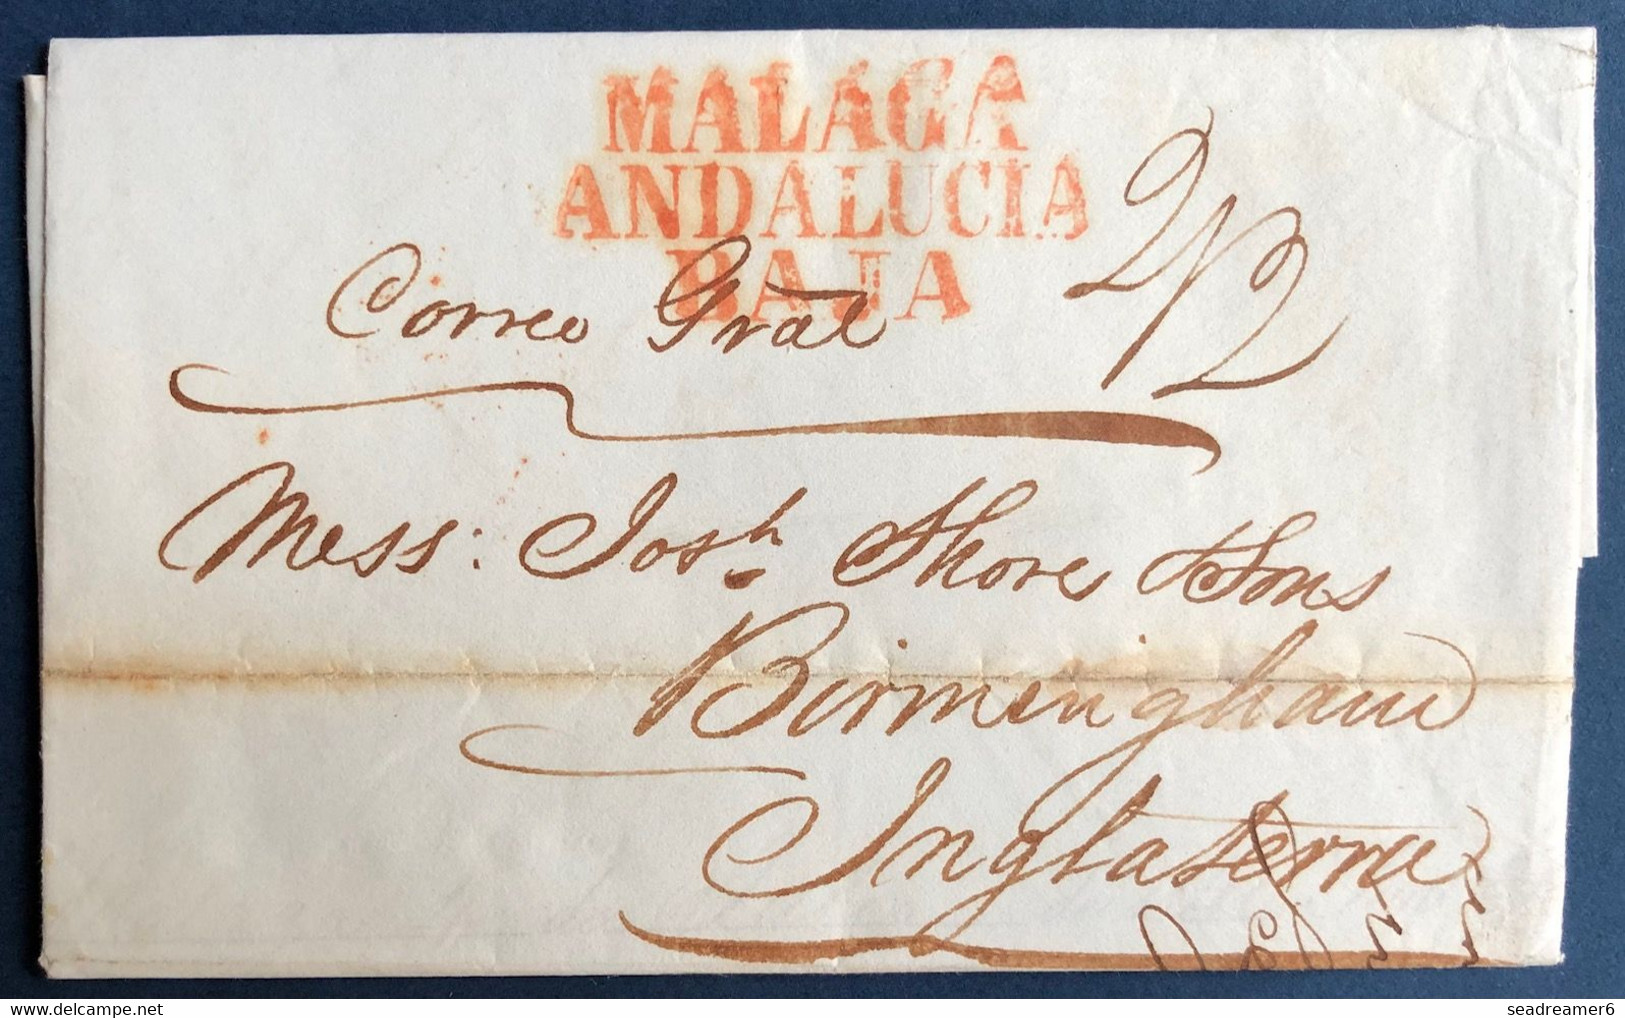 MALAGA
ANDALUCIA
BAJA
2/2
Correo Grãl
Mess: Josh. Shore & Sons
Birmingham
Inglaterra
seadreamer6
delcampe.net